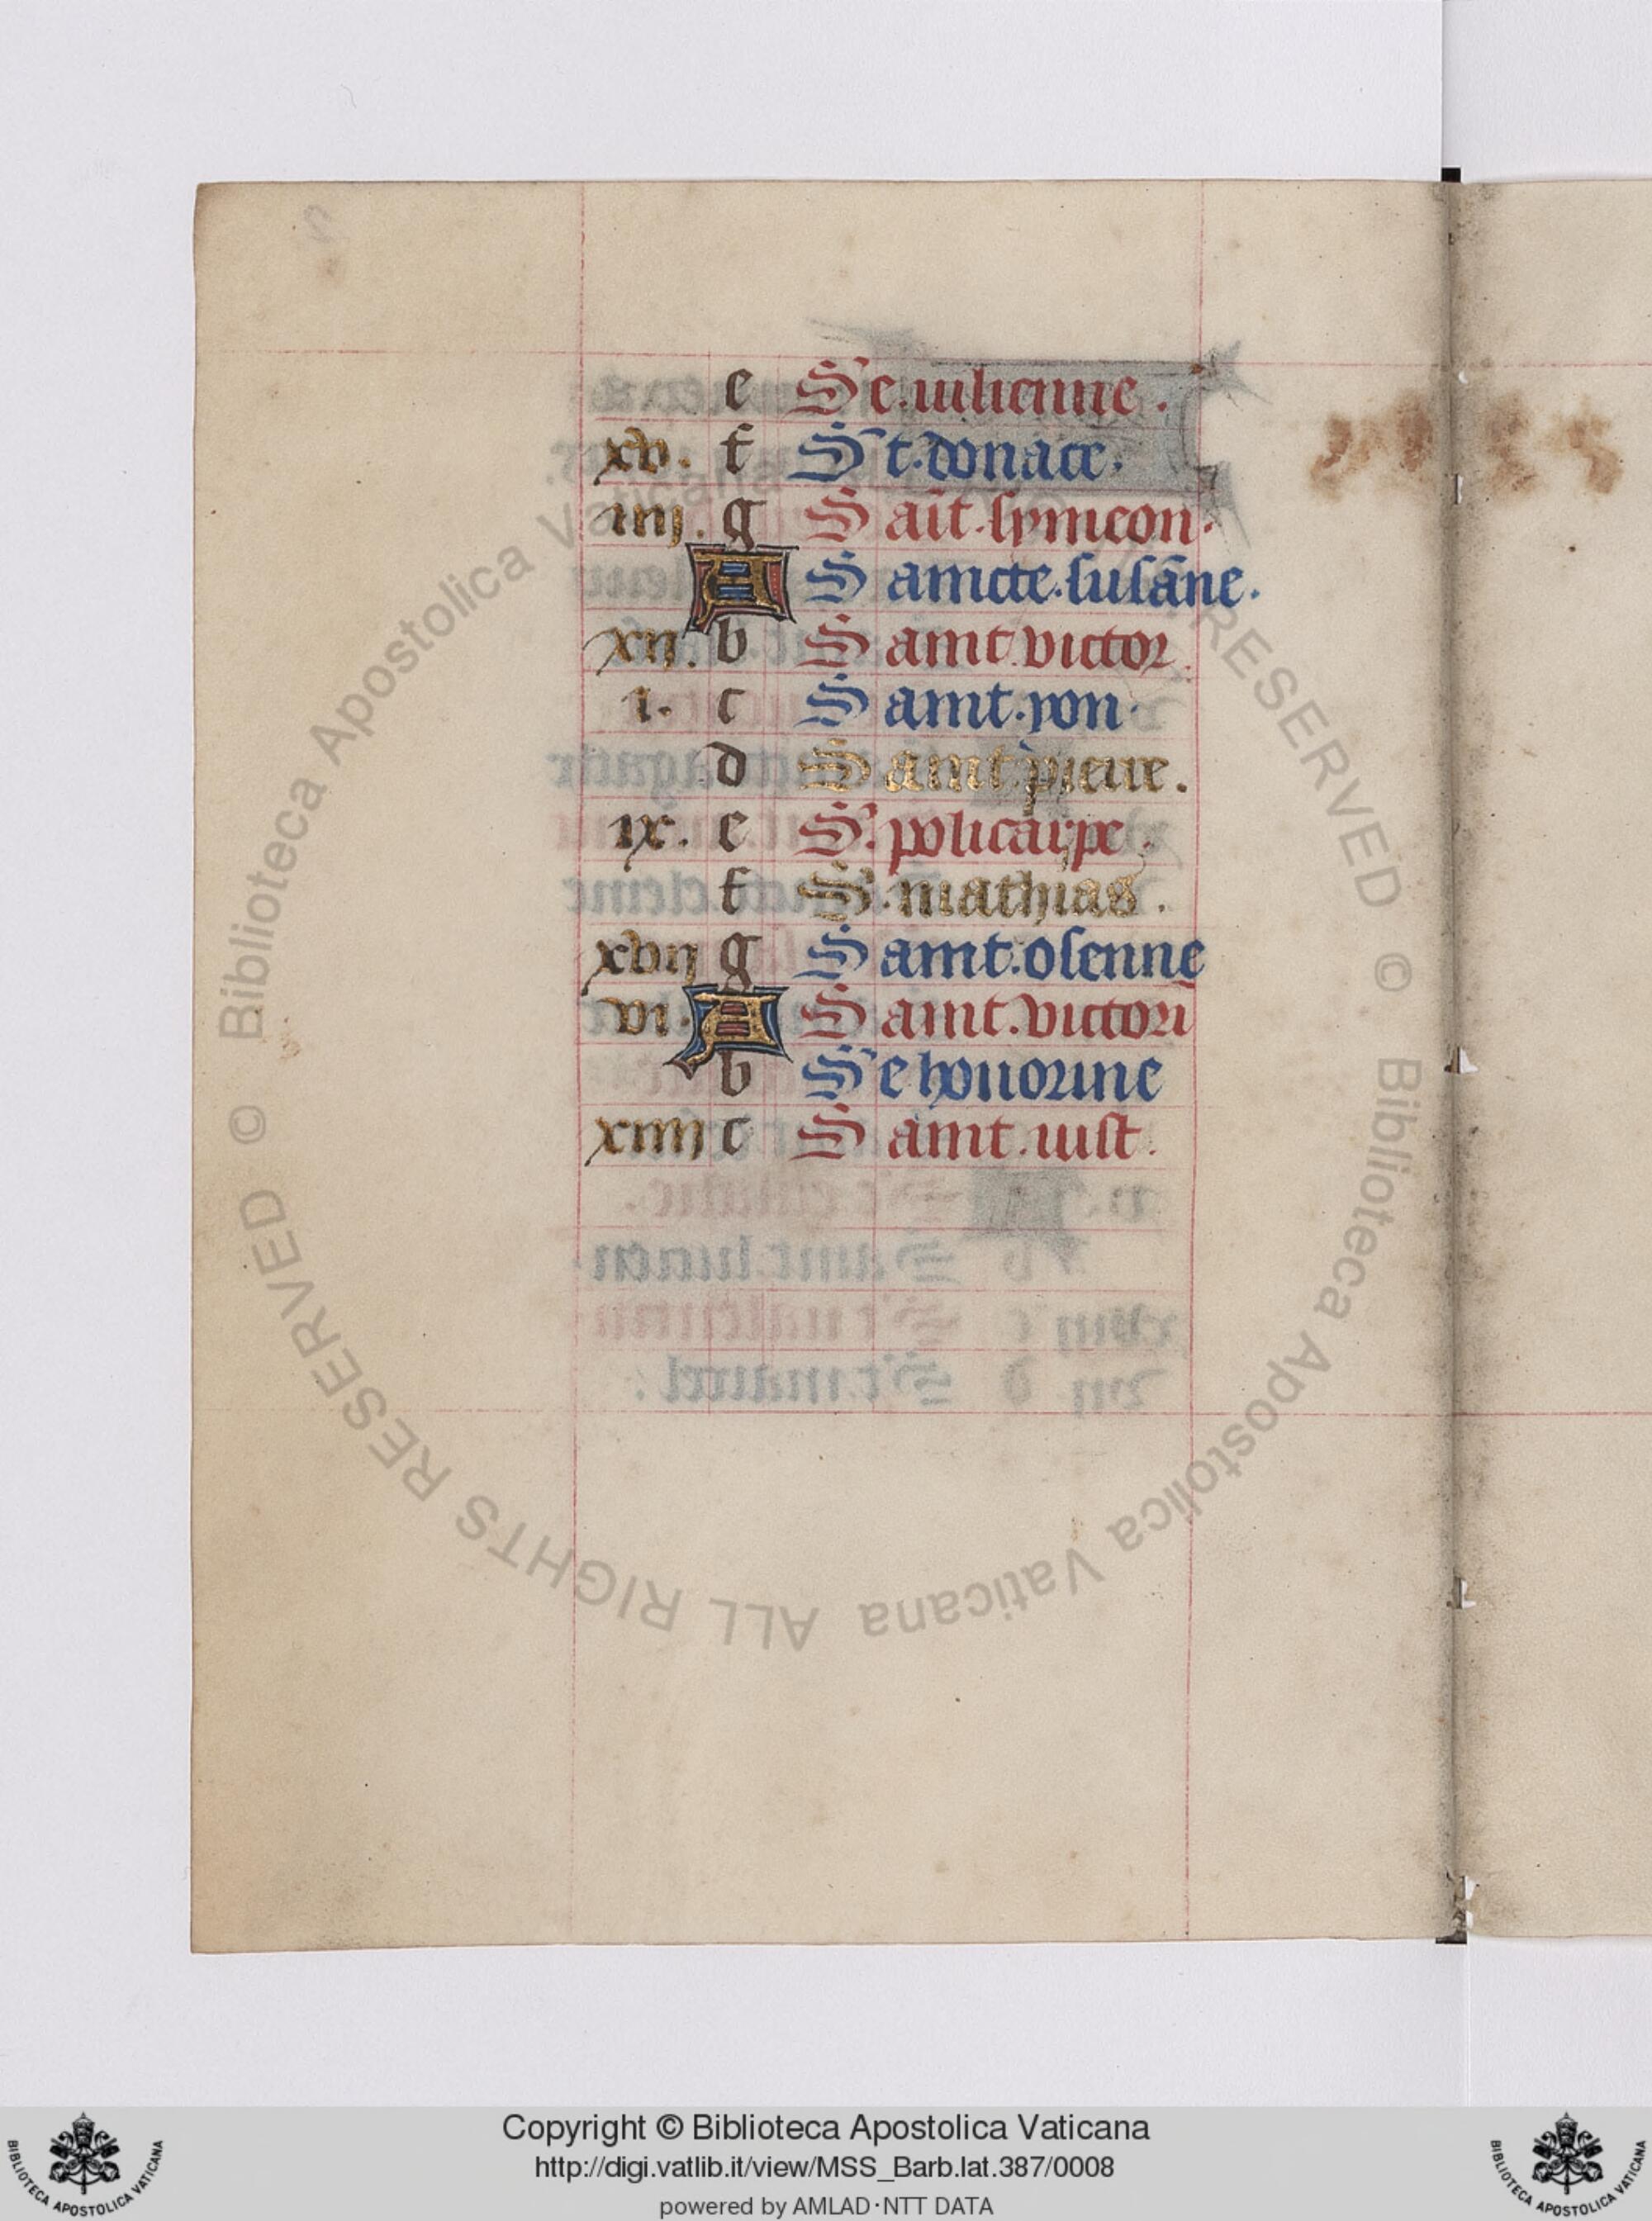 e Se. iulienne.
xv. f St. donace.
iiij. g Sait. symeon.
A Saincte. susãne.
xij. b Saint. victor.
i. c Saint. yon.
d Saint pierre.
ix. e S. policarpe.
f S. mathias.
xvij g Saint. osenne
vi. A Saint. victorĩ
b Se honorine
xiiij c Saint. iust.
© Biblioteca Apostolica Vaticana ALL RIGHTS RESERVED © Biblioteca Apostolica Vaticana ALL RIGHTS RESERVED
Copyright © Biblioteca Apostolica Vaticana
http://digi.vatlib.it/view/MSS_Barb.lat.387/0008
powered by AMLAD·NTT DATA
BIBLIOTECA APOSTOLICA VATICANA
BIBLIOTECA APOSTOLICA VATICANA